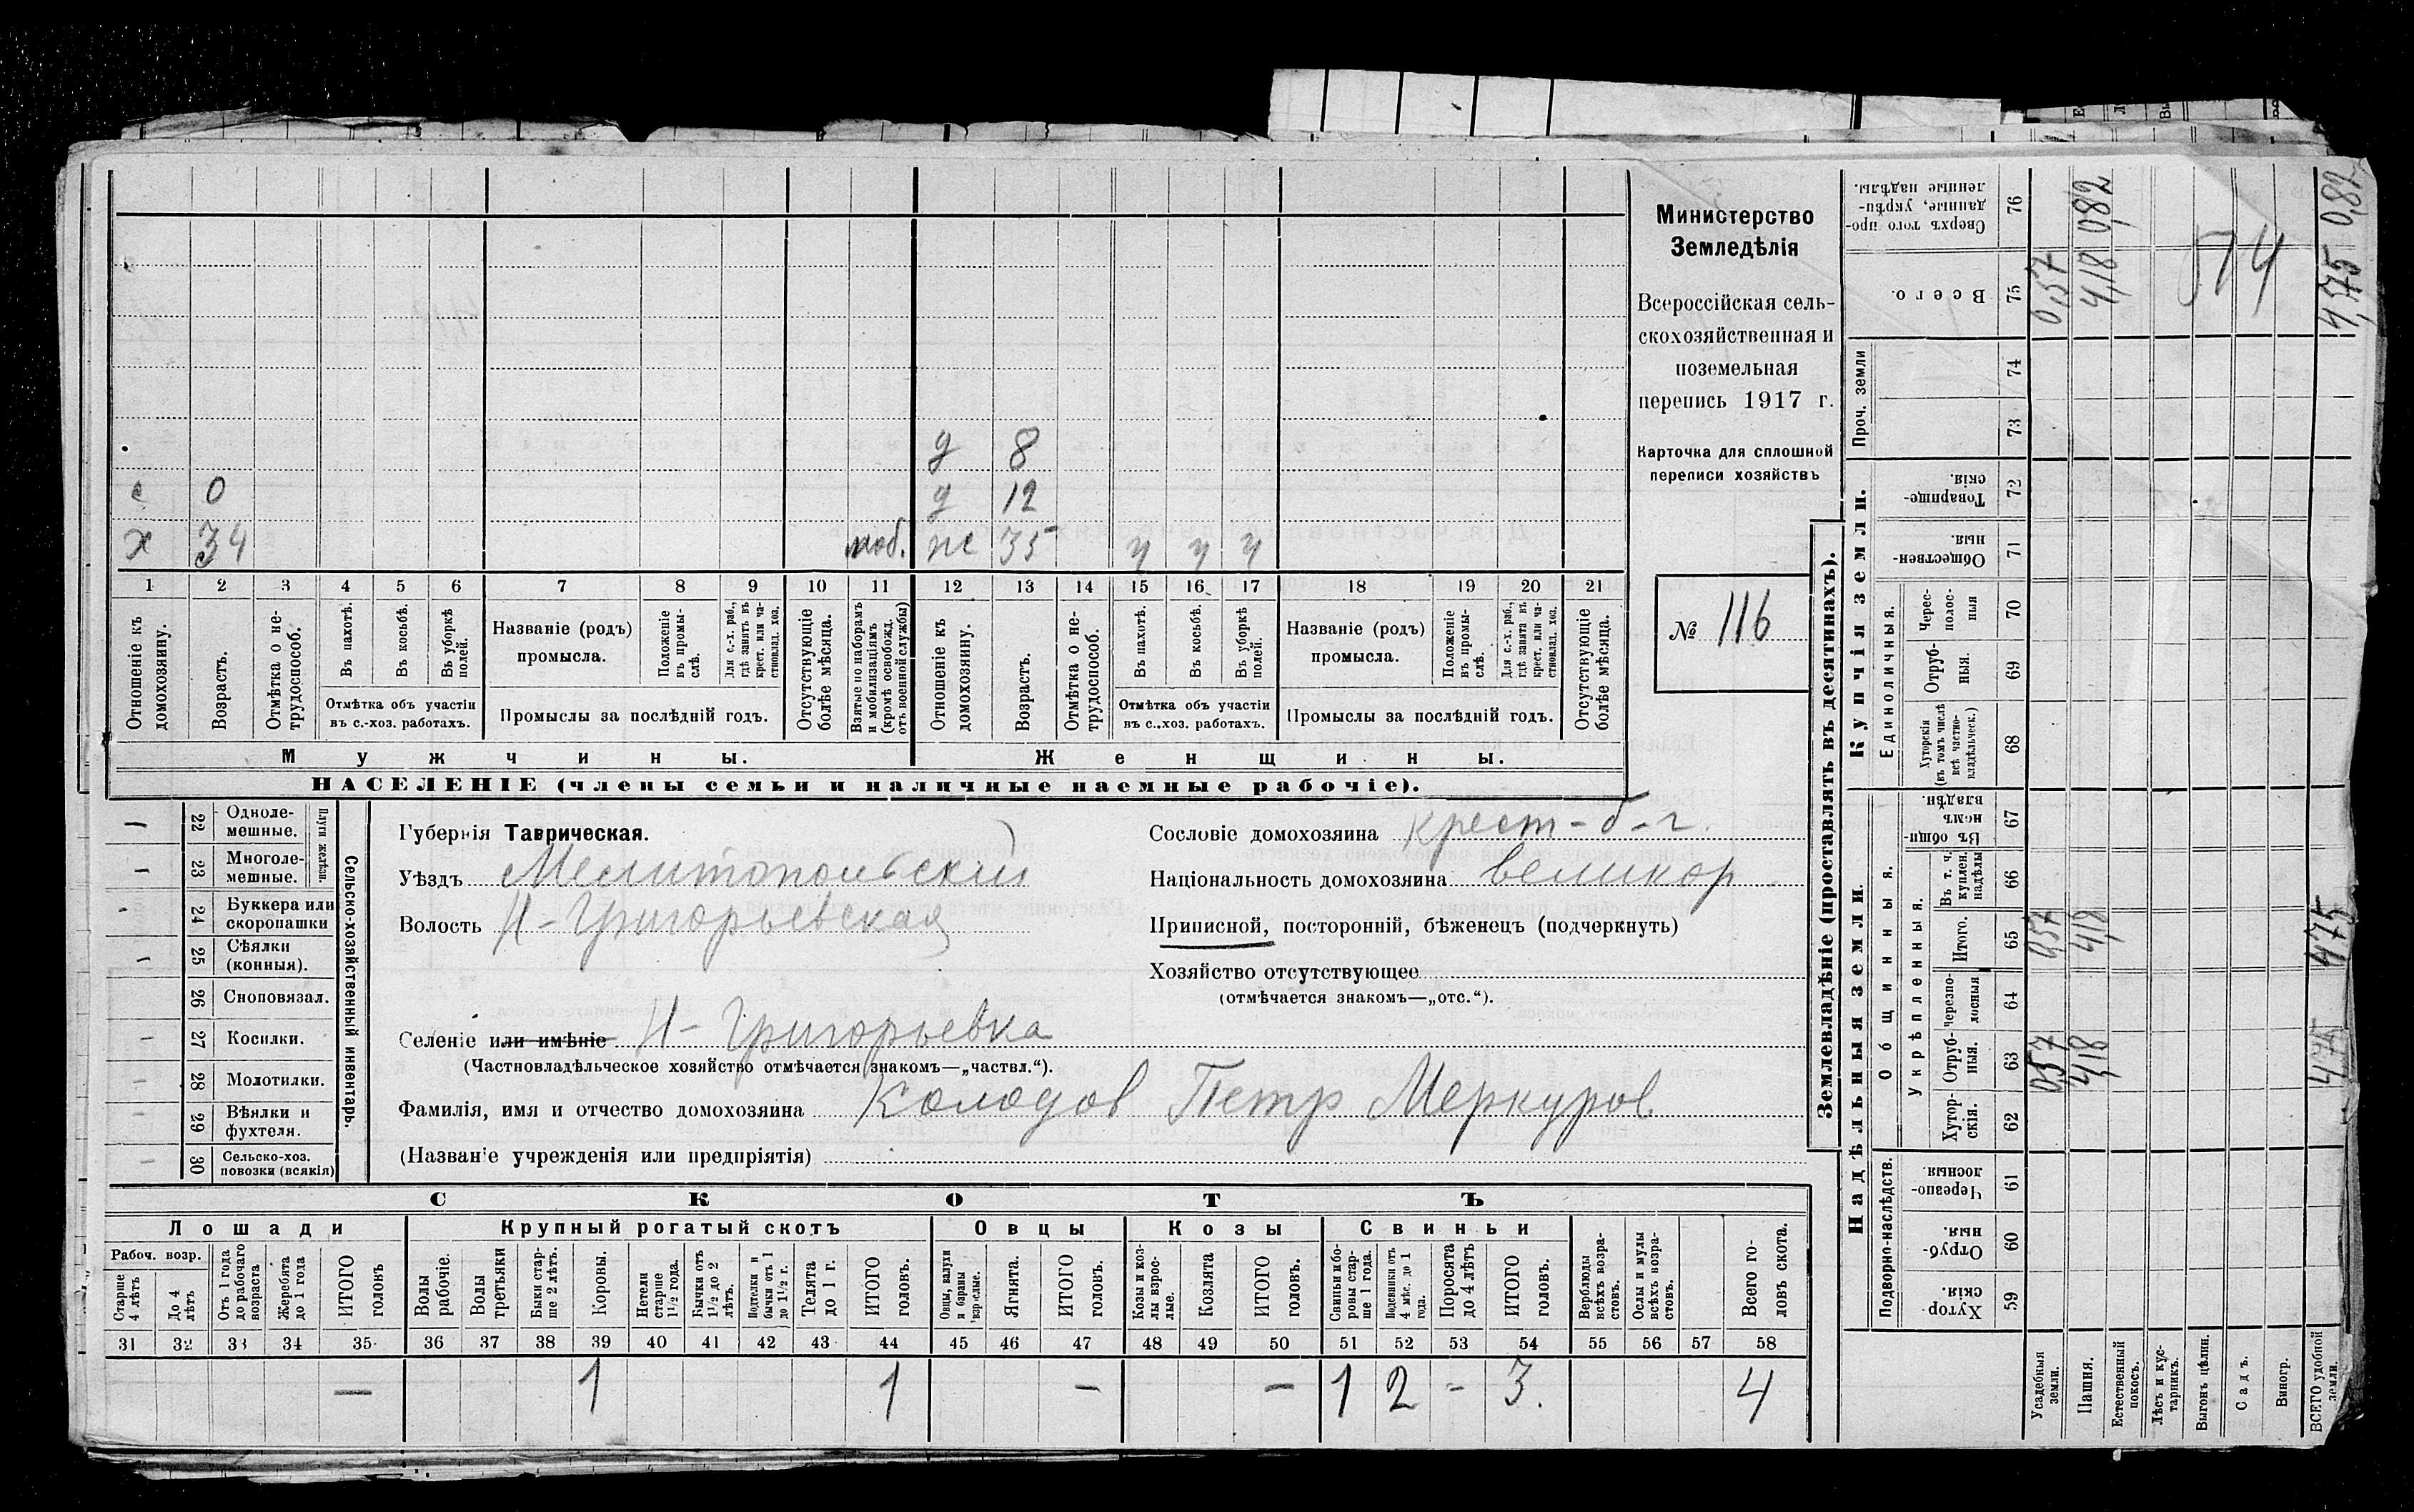 Министерство
Земледѣлія
Всероссійская сель-
скохозяйственная и
поземельная
перепись 1917 г.
Карточка для сплошной
переписи хозяйствъ
№ 116
д 8
с 0 д 12
х 34 моб. же 35 ч ч ч
1 2 3 4 5 6 7 8 9 10 11 12 13 14 15 16 17 18 19 20 21
Отношеніе къ домохозяину.
Возрастъ.
Отмѣтка о не-трудоспособ.
Въ пахотѣ.
Въ косьбѣ.
Въ уборкѣ полей.
Отмѣтка объ участіи
въ с.-хоз. работахъ.
Названіе (родъ)
промысла.
Положеніе въ промы-слѣ.
Для с.-х. раб., гдѣ занятъ въ крест. или ча-стновлад. хоз.
Промыслы за послѣдній годъ.
Отсутствующіе болѣе мѣсяца.
Взятые по наборамъ и мобилизаціямъ (кромѣ освобожд. отъ военной службы)
Отношеніе къ домохозяину.
Возрастъ.
Отмѣтка о не-трудоспособ.
Въ пахотѣ.
Въ косьбѣ.
Въ уборкѣ полей.
Отмѣтка объ участіи
въ с.-хоз. работахъ.
Названіе (родъ)
промысла.
Положеніе въ промы-слѣ.
Для с.-х. раб., гдѣ занята въ крест. или ча-стновлад. хоз.
Промыслы за послѣдній годъ.
Отсутствующіе болѣе мѣсяца.
Мужчины. Женщины.
НАСЕЛЕНІЕ (члены семьи и наличные наемные рабочіе).
Сельско-хозяйственный инвентарь.
Плуги желѣзн.
— 22 Одноле-мешные.
— 23 Многоле-мешные.
- 24 Буккера или скоропашки
— 25 Сѣялки (конныя).
26 Сноповязал.
- 27 Косилки.
- 28 Молотилки.
- 29 Вѣялки и фухтеля.
- 30 Сельско-хоз. повозки (всякія)
Губернія Таврическая.
Уѣздъ Мелитопольскій
Волость Н-Григорьевская
Селеніе или имѣніе Н-Григорьевка
(Частновладѣльческое хозяйство отмѣчается знакомъ—„частвл.“).
Фамилія, имя и отчество домохозяина Колодов Петр Меркуров
(Названіе учрежденія или предпріятія)
Сословіе домохозяина крест-б-г.
Національность домохозяина великор
Приписной, посторонній, бѣженецъ (подчеркнуть)
Хозяйство отсутствующее
(отмѣчается знакомъ—„отс.“).
СКОТЪ
Лошади Крупный рогатый скотъ Овцы Козы Свиньи
Рабоч. возр.
Старше 4 лѣтъ
До 4 лѣтъ
Отъ 1 года до рабочаго возраста
Жеребята до 1 года
ИТОГО головъ
Волы рабочіе.
Волы третьяки
Быки стар-ше 2 лѣтъ.
Коровы.
Нетели старше 1½ года.
Бычки отъ 1½ до 2 лѣтъ.
Подтелки и бычки отъ 1 до 1½ г.
Телята до 1 г.
ИТОГО головъ.
Овцы, валухи и бараны взрослые.
Ягнята.
ИТОГО головъ.
Козы и коз-лы взрос-лые.
Козлята
ИТОГО головъ.
Свиньи и бо-ровы стар-ше 1 года.
Подсвинки отъ 4 мѣс. до 1 года.
Поросята до 4 лѣтъ
ИТОГО головъ.
Верблюды всѣхъ возра-стовъ.
Ослы и мулы всѣхъ возра-стовъ.
Всего го-ловъ скота.
31 32 33 34 35 36 37 38 39 40 41 42 43 44 45 46 47 48 49 50 51 52 53 54 55 56 57 58
— 1 1 — — 1 2 - 3. 4
Землевладѣніе (проставлять въ десятинахъ).
Купчія земли.
Надѣльныя земли.
Проч. земли
Единоличныя.
Общинныя.
Укрѣпленныя.
Подворно-наслѣдств.
Сверхъ того про-данные, укрѣп-ленные надѣлы. 76
Всего. 75
74
73
Товарище-скія. 72
Обществен-ныя. 71
Черес-полос-ныя 70
Отруб-ныя. 69
Хуторскія (въ томъ числѣ всѣ частно-владѣльческ.) 68
Въ общи-номъ владѣн. 67
Въ т. ч. куплен. надѣлы 66
Итого. 65
Черезпо-лосныя 64
Отруб-ныя. 63
Хутор-скія. 62
Черезпо-лосныя. 61
Отруб-ныя. 60
Хутор-скія. 59
Усадебныя земли. 0,57 0,57 0,57
Пашня. 4,18 4,18 4,18 0,82
Естественный покосъ.
Лѣсъ и кус-тарникъ.
Выгонъ цѣлин.
Садъ.
Виногр.
ВСЕГО удобной земли. 4,75 4,75 4,75 0,82